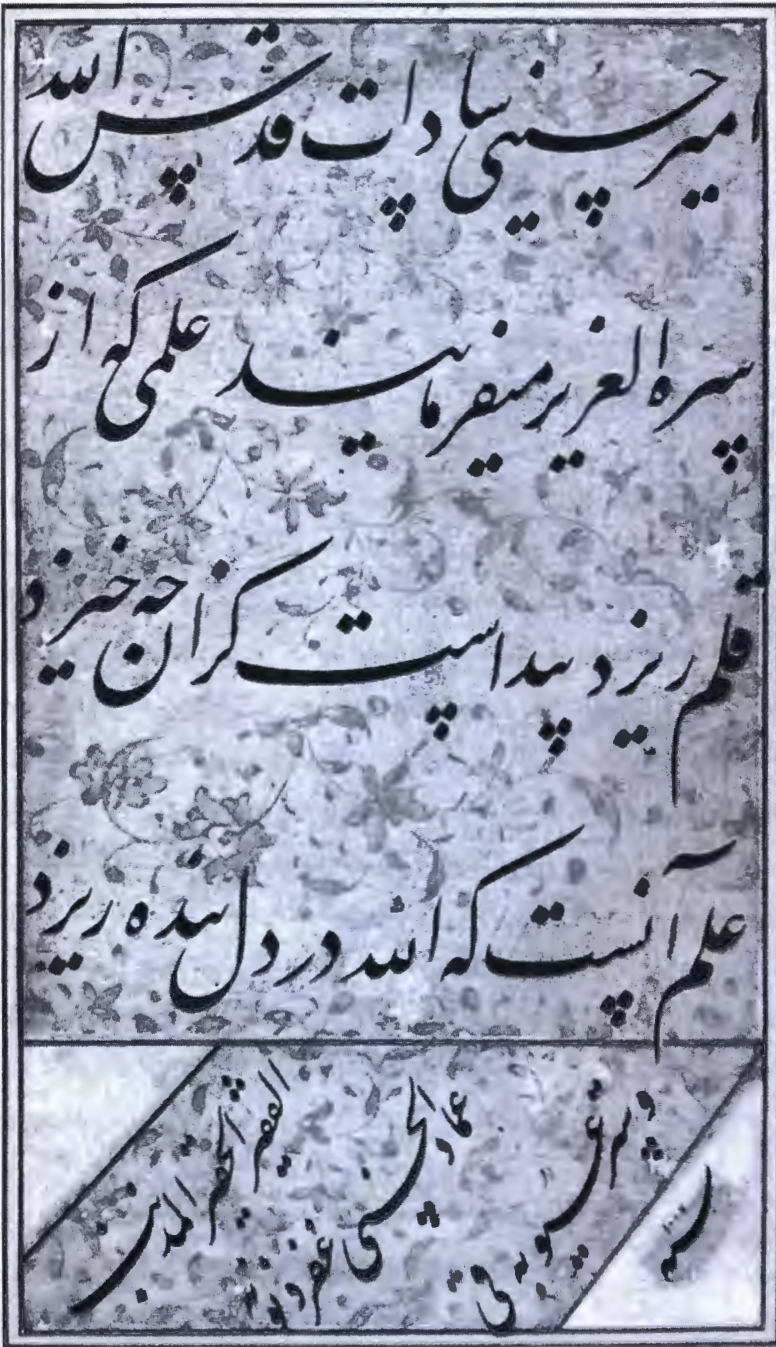 امیر حسینی سادات قدس الله
سره العزیز میفرمایند علمی که از
قلم ریزد پیداست کزان چه خیزد
علم آنست که الله در دل بنده ریزد
الفقیر الحقیر المذنب
عماد الحسنی غفر ذنوبه